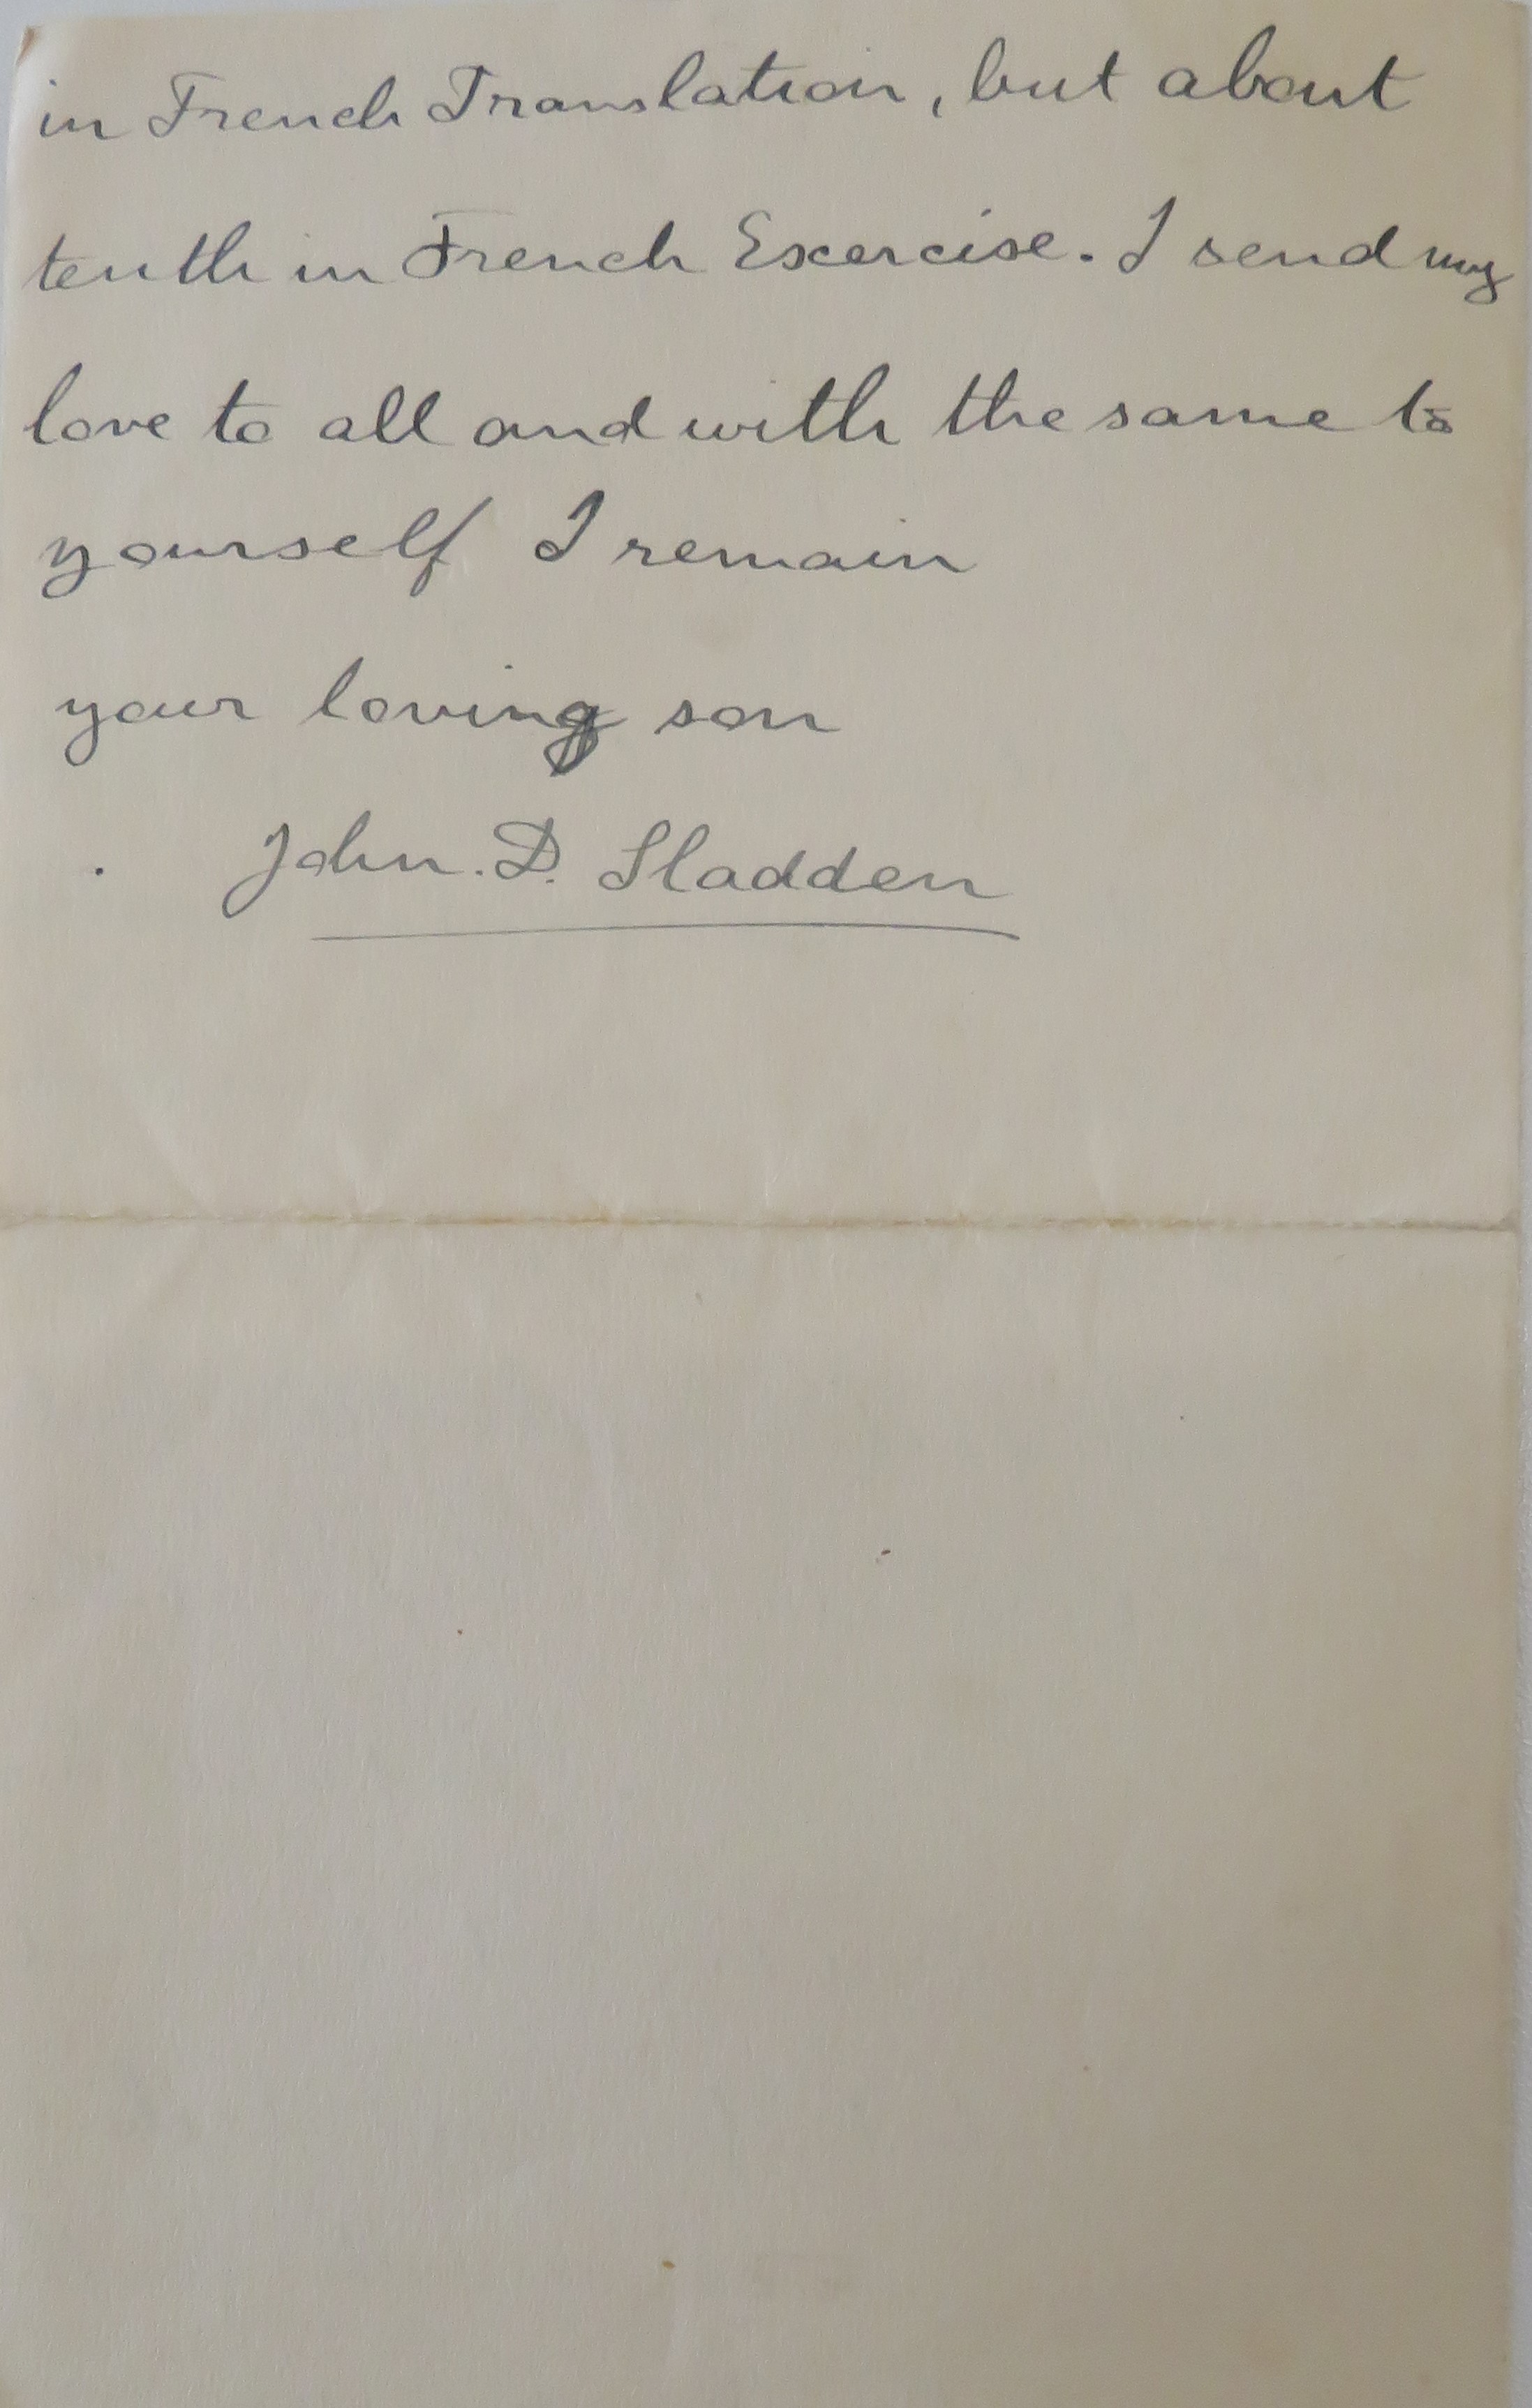 in French Translation, but about
tenth in French Excercise. I send my
love to all and with the same to
yourself I remain
your loving son
John. D. Sladden